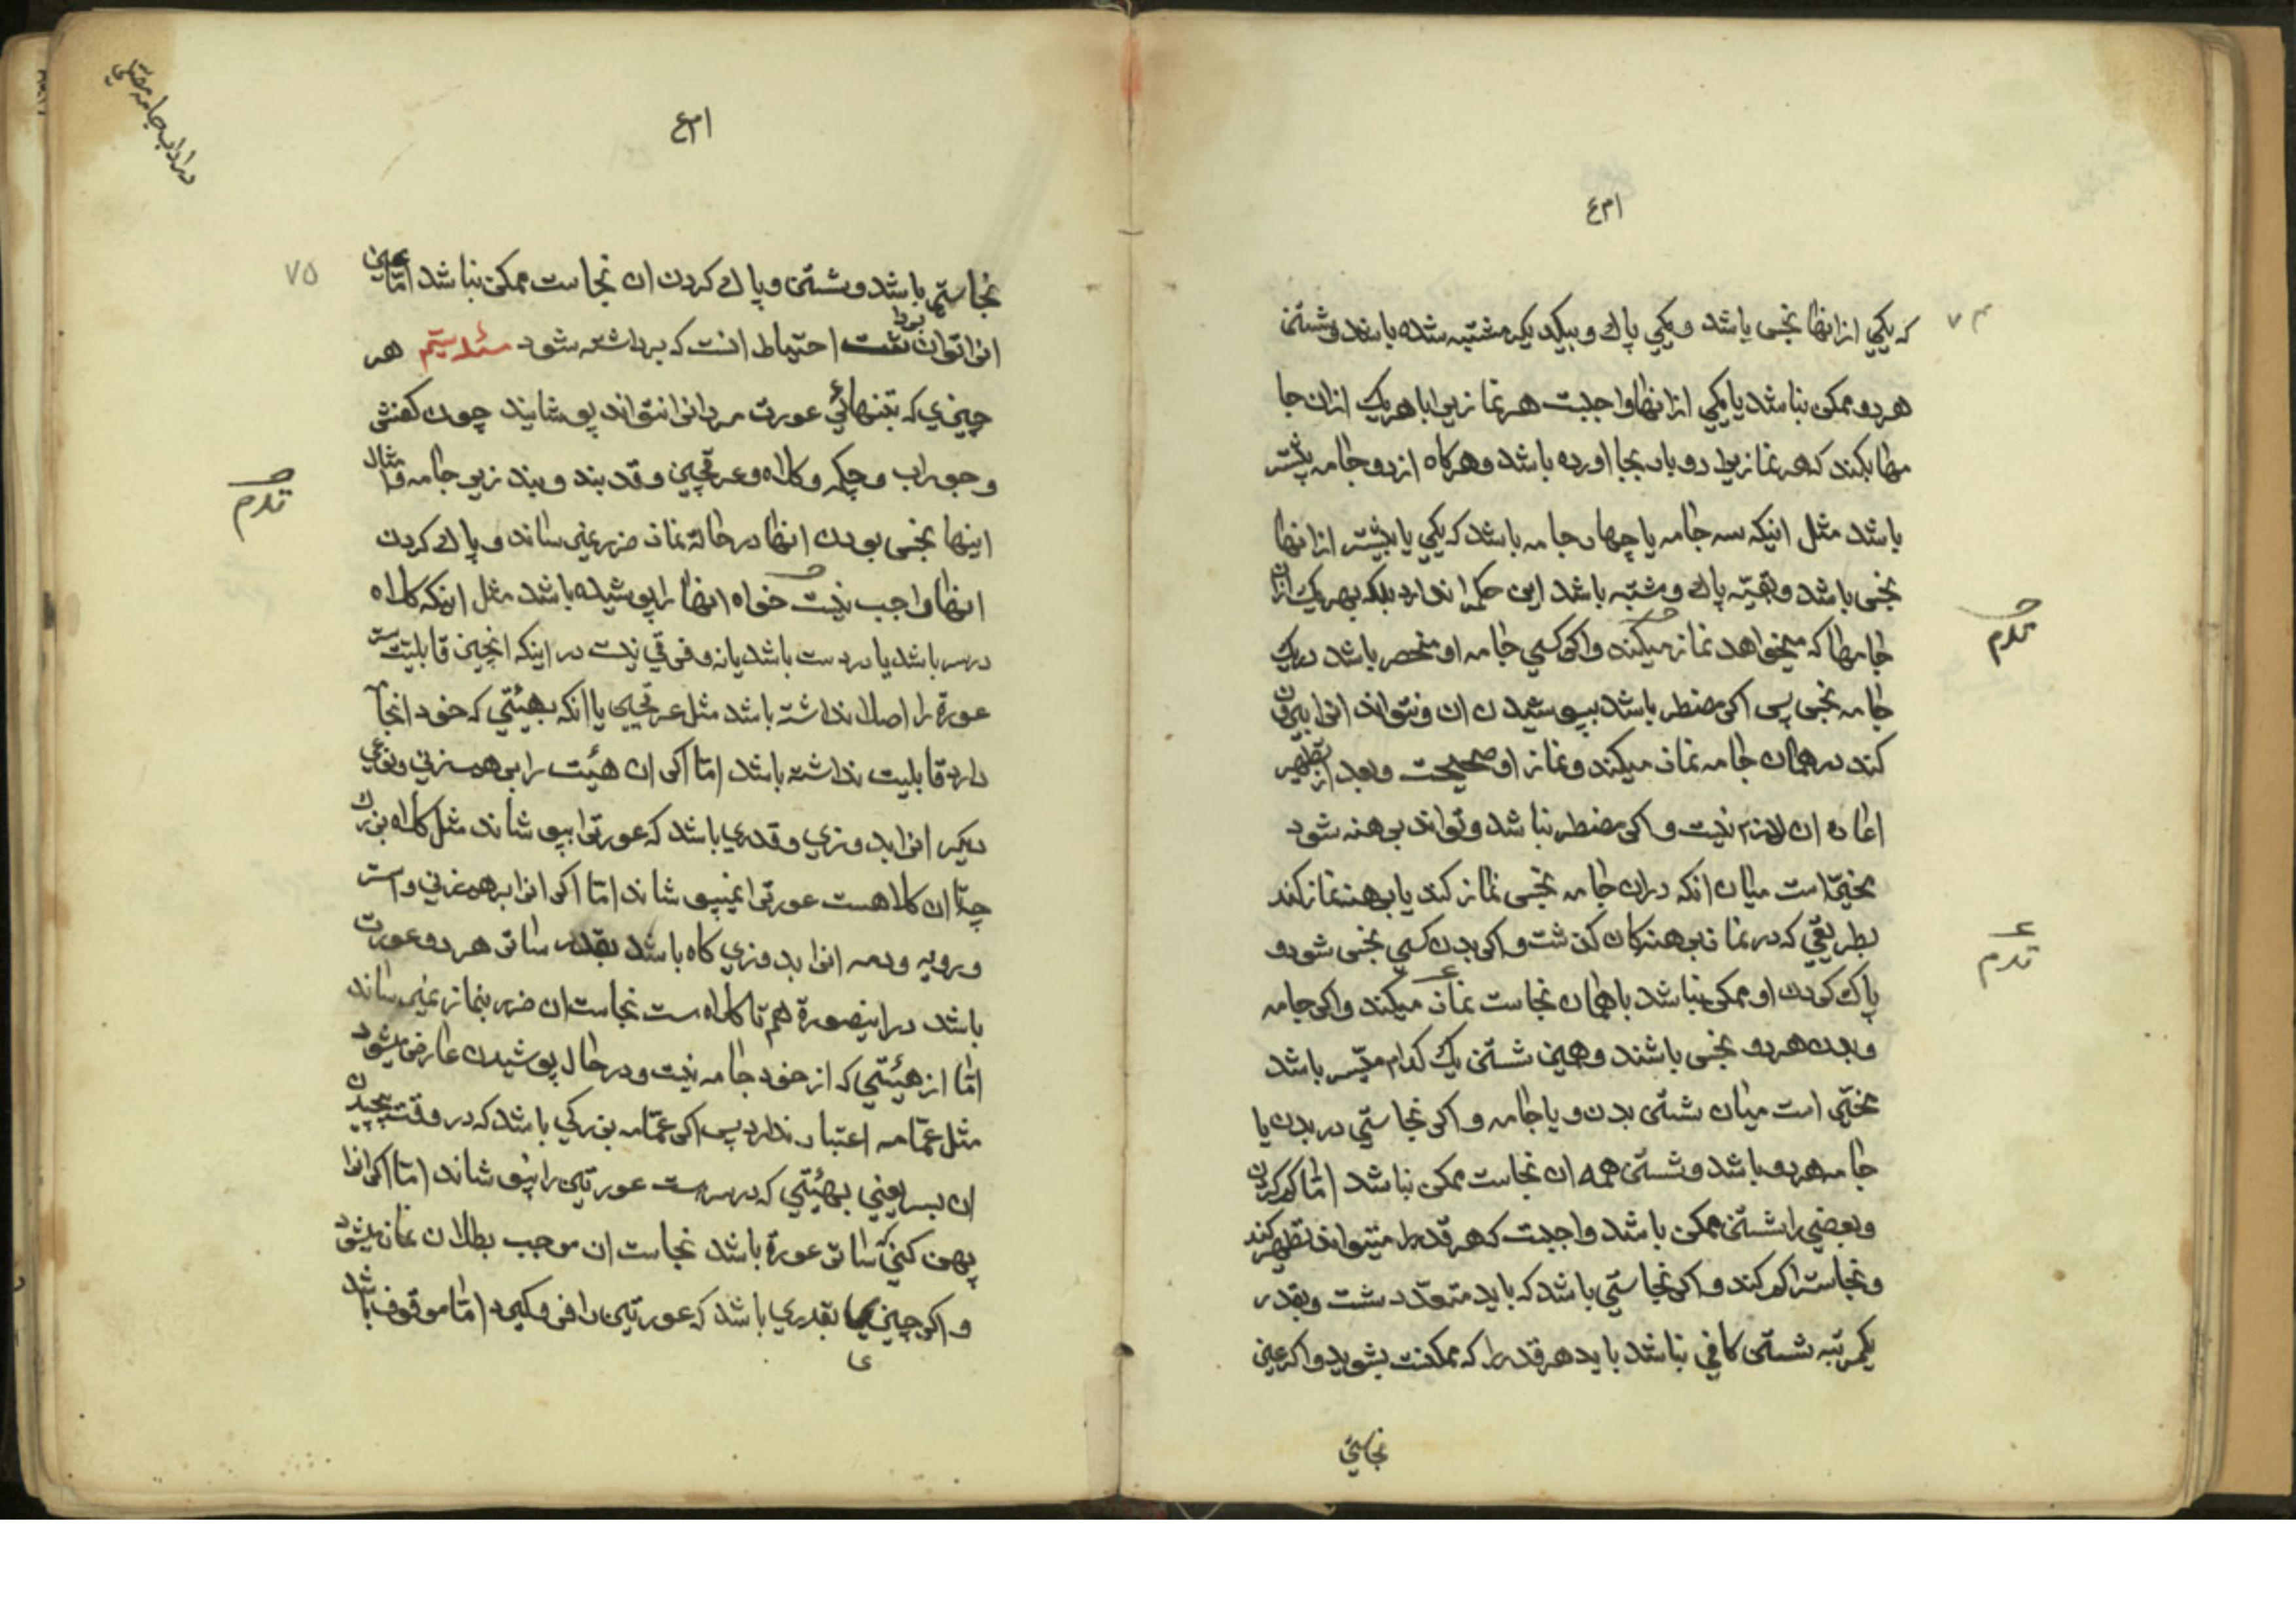 ۷۴
که یکی از انها نجس باشد و یکی پاک و بیکدیکر مشتبه شده باشند و شستن
هر دو ممکن نباشد یا یکی از انها واجبست هر نمازیرا با هر یک از ان جا
مها بکند که هر نمازیرا دو بار بجا اورده باشد و هرکاه از دو جامه بیشتر
باشد مثل اینکه سه جامه یا چهار جامه باشد که یکی یا بیشتر از انها
نجس باشد و بقیّه پاک و مشتبه باشد این حکم را ندارد بلکه بهر یک از ان
جامها که میخواهد نماز میکند و اکر کسی جامه او منحصر باشد در یک
جامه نجس پس اکر مضطر باشد بپوشیدن ان و نتواند انرا بیرون
کند در همان جامه نماز میکند و نماز او صحیحست و بعد از تطهیر
اعاده ان لازم نیست و اکر مضطر نباشد و تواند برهنه شود
مخیّر است میان انکه در ان جامه نجس نماز کند یا برهنه نماز کند
بطریقی که در نماز برهنه کان کذشت و اکر بدن کسی نجس شود و
پاک کردن او ممکن نباشد با همان نجاست نماز میکند و اکر جامه
و بدن هر دو نجس باشند و همین شستن یک کدام میّسر باشد
مخیّر است میان شستن بدن و یا جامه و اکر نجاستی در بدن یا
جامه هر دو باشد و شستن همه ان نجاست ممکن نباشد امّا کم کردن
و بعضی را شستن ممکن باشد واجبست که هر قدر را میتواند تطهیر کند
و نجاست را کم کند و اکر نجاستی باشد که باید متعدّد شست و بقدر
یکمرتبه شستن کافی نباشد باید هر قدر را که ممکنست بشوید و اکر عین
نجاستی
۷۵
نجاستی باشد و شستن و پاک کردن ان نجاست ممکن نباشد امّا عین
انرا توان برد احتیاط انست که برداشته شود مسئله سیّم هر
چیزی که بتنهائی عورت مرد را نتواند پوشانید چون کفش
و جوراب و چکمه و کلاه و عرقچین و قدبند و بند زیر جامه و امثال
اینها نجس بودن انها در حالة نماز ضرر نمیرساند و پاک کردن
انها واجب نیست خواه انها را پوشیده باشد مثل اینکه کلاه
در سر باشد یا در دست باشد یا نه و فرقی نیست در اینکه انچیز قابلیّت ستر
عورة را اصلا نداشته باشد مثل عرقچین یا انکه بهیئتی که خود انجا
دارد قابلیت نداشته باشد امّا اکر ان هیئت را برهم زنی و نوعی
دیکر انرا بدوزی و قدری باشد که عورتی را بپوشاند مثل کلاه بزرک
چه تا ان کلاهست عورتی را نمیپوشاند امّا اکر انرا برهم زنی و استر
و رویه و دمه انرا بدوزی کاه باشد بقدر ساتر هر دو عورت
باشد در اینصورة هم تا کلاه است نجاست ان ضرر بنماز نمیرساند
امّا از هیئتی که از خود جامه نیست و در حال پوشیدن عارض میشود
مثل عمّامه اعتبار ندارد پس اکر عمّامه بزرکی باشد که در وقت پیچیدن
ان بسر یعنی بهیئتی که در سر است عورتین را نپوشاند امّا اکر انرا
پهن کنی ساتر عورة باشد نجاست ان موجب بطلان نماز میشود
و اکر چیزی بقدری باشد که عورتین را فرو کیرد امّا موقوف باشد